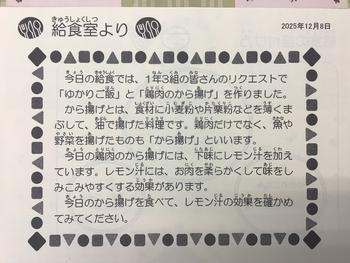 きゅうしょくしつ
給食室より
2025年12月8日
今日の給食では、1年3組の皆さんのリクエストで
「ゆかりご飯」と「鶏肉のから揚げ」を作りました。
から揚げとは、食材に小麦粉や片栗粉などを薄くま
ぶして、油で揚げた料理です。鶏肉だけでなく、魚や
野菜を揚げたものも「から揚げ」といいます。
今日の鶏肉のから揚げには、下味にレモン汁を加え
ています。レモン汁には、お肉を柔らかくして味をし
みこみやすくする効果があります。
今日のから揚げを食べて、レモン汁の効果を確かめ
てみてください。